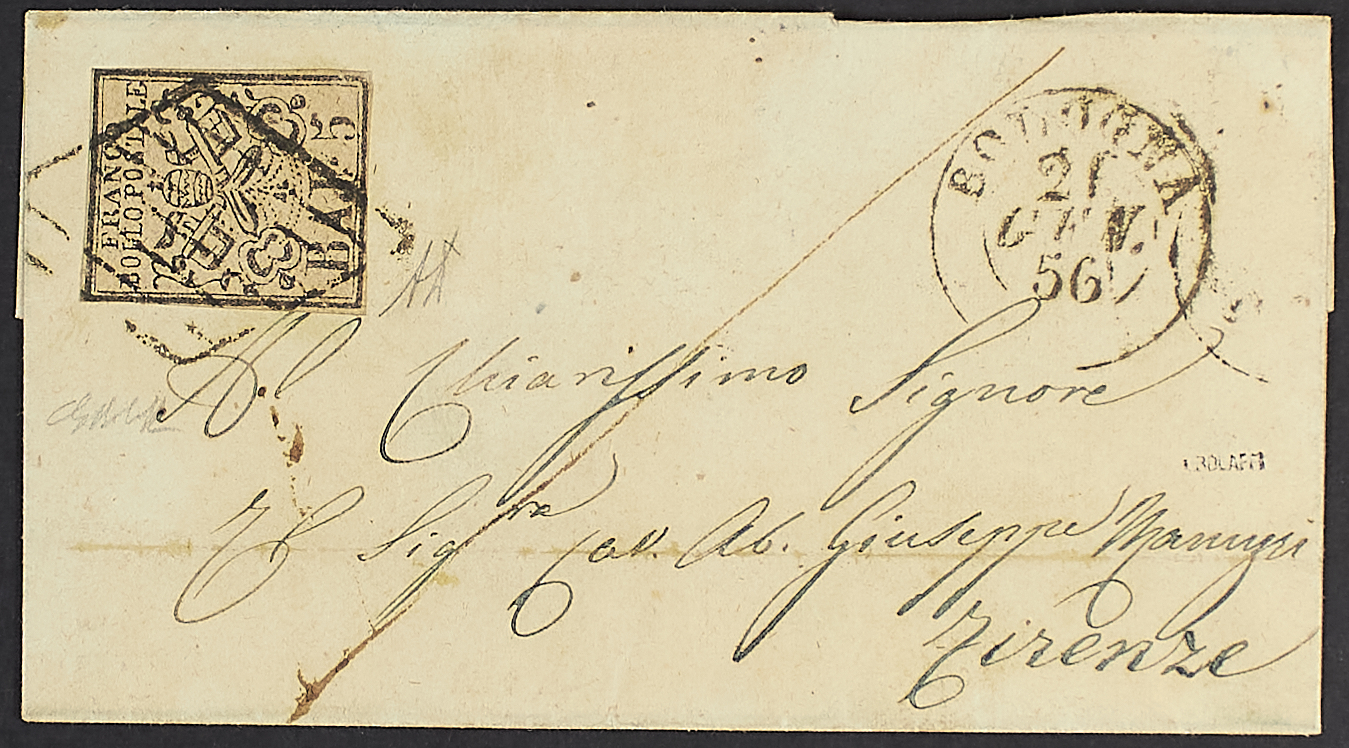 FRANCO
BOLLO POSTALE
BAJ. 5
BOLOGNA
21
GEN.
56
Al Chiarissimo Signore
Il Sig.re Cav. Ab. Giuseppe Manuzzi
Firenze